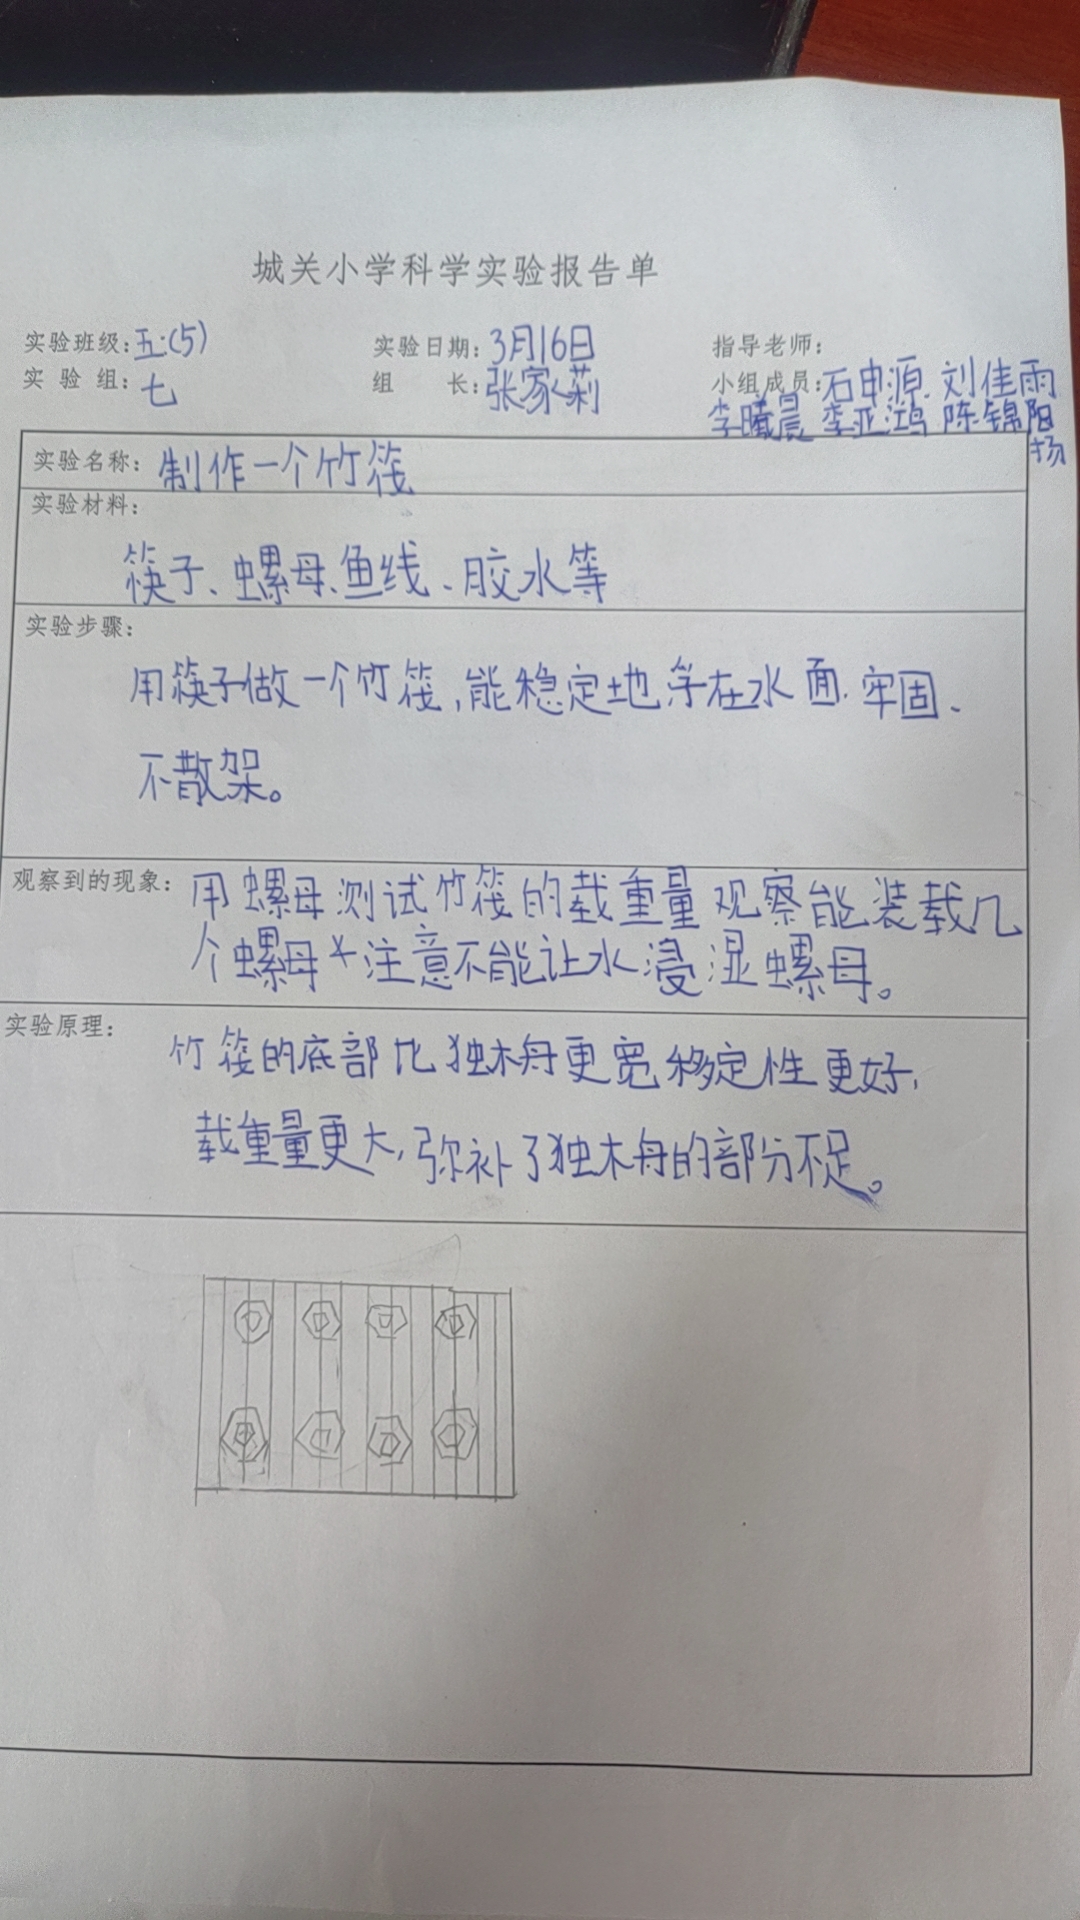 城关小学科学实验报告单
实验班级:五.(5) 实验日期:3月16日 指导老师:
实 验 组:七 组 长:张家莉 小组成员:石申源.刘佳雨
李曦晨 李亚鸿 陈锦阳
扬
实验名称:制作一个竹筏
实验材料:
筷子、螺母、鱼线、胶水等
实验步骤:
用筷子做一个竹筏,能稳定地浮在水面.牢固、
不散架。
观察到的现象:用螺母测试竹筏的载重量观察能装载几
个螺母*注意不能让水浸湿螺母。
实验原理:竹筏的底部比独木舟更宽移定性更好,
载重量更大,弥补了独木舟的部分不足。